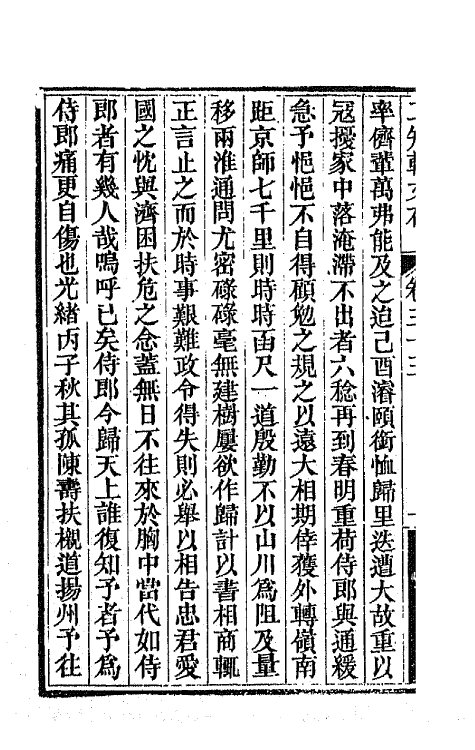 二知軒文存 卷三十三 一
率儕輩萬弗能及之迨己酉濬頤銜恤歸里迭遭大故重以
冠擾家中落淹滯不出者六稔再到春明重荷侍郎與通緩
急予悒悒不自得顧勉之規之以遠大相期倖獲外轉嶺南
距京師七千里則時時函尺一道殷勤不以山川爲阻及量
移兩淮通問尤密碌碌毫無建樹屢欲作歸計以書相商輒
正言止之而於時事艱難政令得失則必舉以相告忠君愛
國之忱與濟困扶危之念蓋無日不往來於胸中當代如侍
郎者有幾人哉嗚呼已矣侍郎今歸天上誰復知予者予爲
侍郎痛更自傷也光緒丙子秋其孤陳壽扶櫬道揚州予往